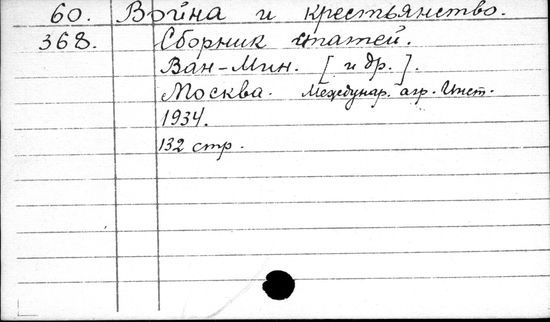 60. Война и крестьянство.
368. Сборник статей.
Ван-Мин. [ и др. ].
Москва. Междунар. агр. Инст.
1934.
132 стр.